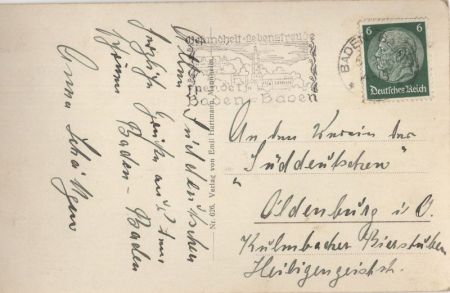 Gesundheit - Lebensfreude
Baden-Baden
BADEN
6 6
Deutsches Reich
Den Süddeutschen
herzliche Grüße aus dem
schönen Baden-Baden
Anna
Nr. 626. Verlag von Emil Hartmann, Mannheim.
An den Verein der
"Süddeutschen"
Oldenburg i. O.
Kulmbacher Bierstuben
Heiligengeiststr.